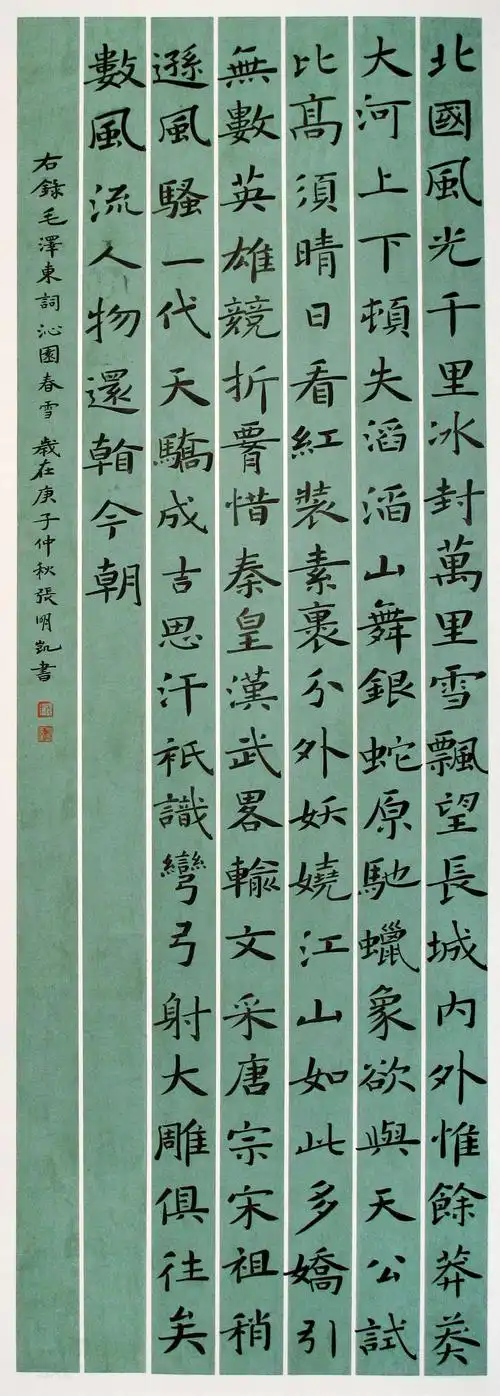 北國風光千里冰封萬里雪飄望長城内外惟餘莽莽
大河上下頓失滔滔山舞銀蛇原馳蠟象欲與天公試
比髙須晴日看紅裝素裹分外妖嬈江山如此多嬌引
無數英雄競折腰惜秦皇漢武畧輸文采唐宗宋祖稍
遜風騷一代天驕成吉思汗祇識彎弓射大雕俱往矣
數風流人物還看今朝
右錄毛澤東詞沁園春雪 歲在庚子仲秋張明凱書